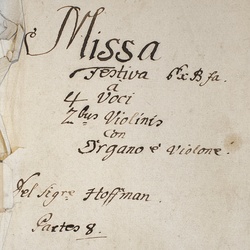 Missa
Festiva ex B fa.
a
4 Voci
2bus Violinis
con
Organo è Violone.
Del Sigre Hoffman.
Partes 8.